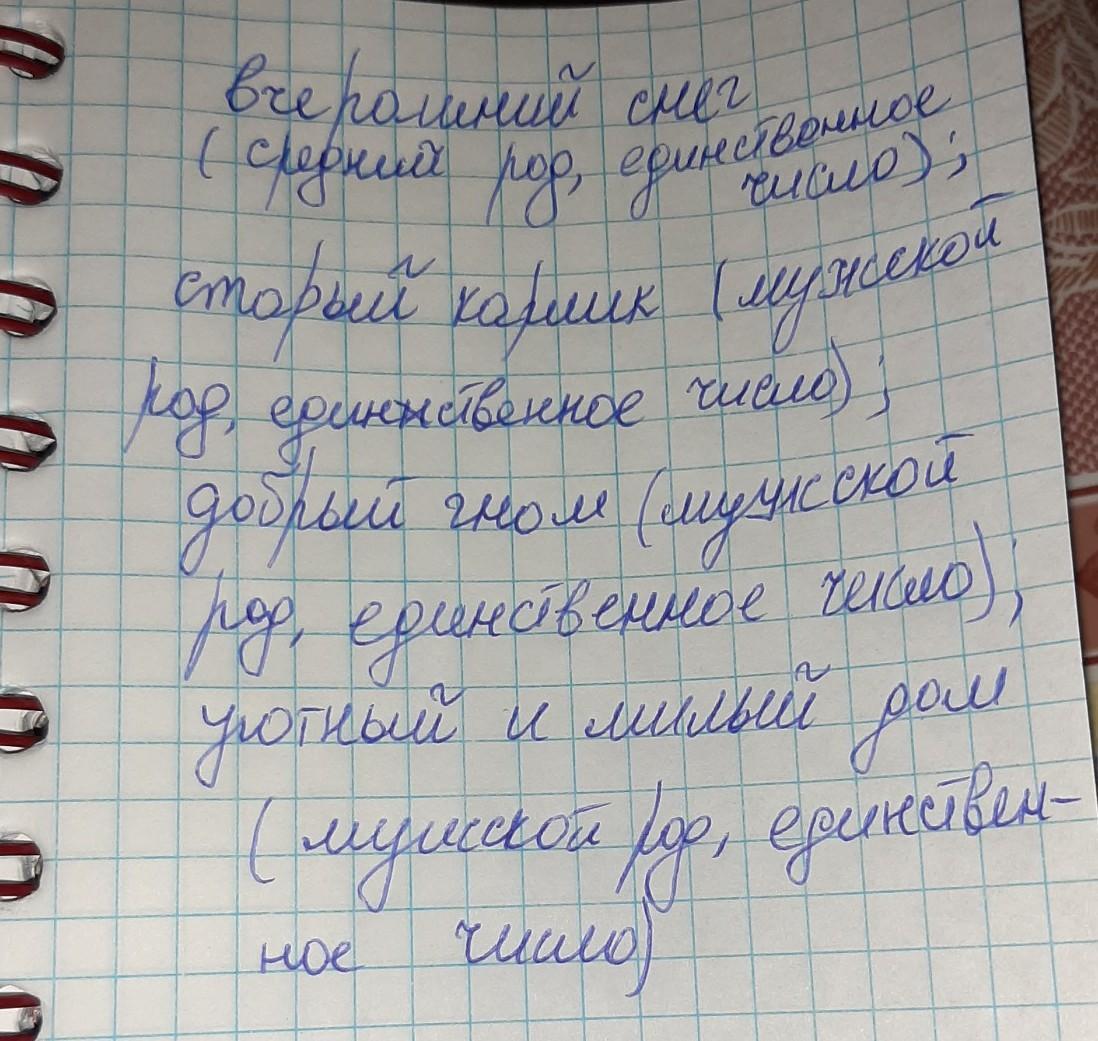 вчерашний снег
(средний род, единственное
число);
старый карлик (мужской
род, единственное число);
добрый гном (мужской
род, единственное число);
уютный и милый дом
(мужской род, единствен-
ное число)